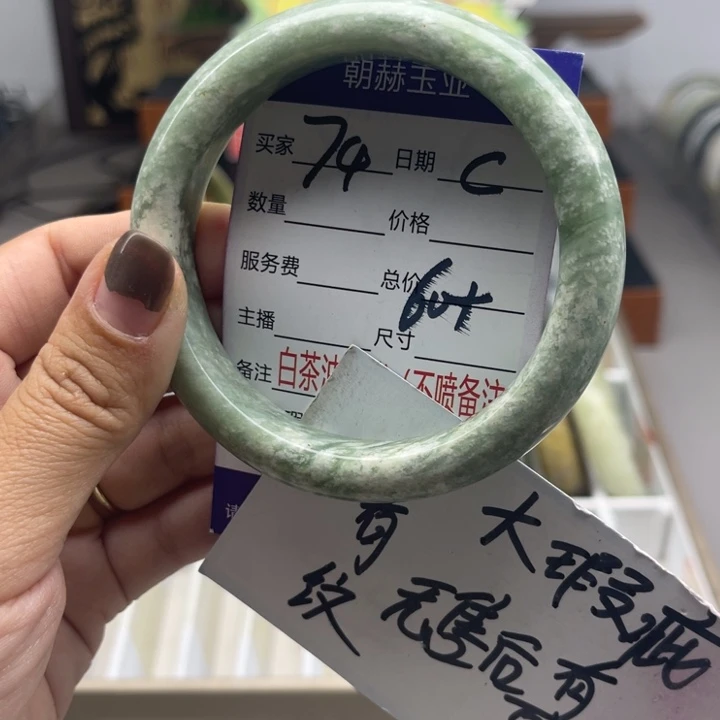 朝赫玉业
买家 74 日期 C
数量 价格
服务费 总价
主播 尺寸
备注 白茶 (不喷备注
请
有 大瑕疵
纹 无售后有